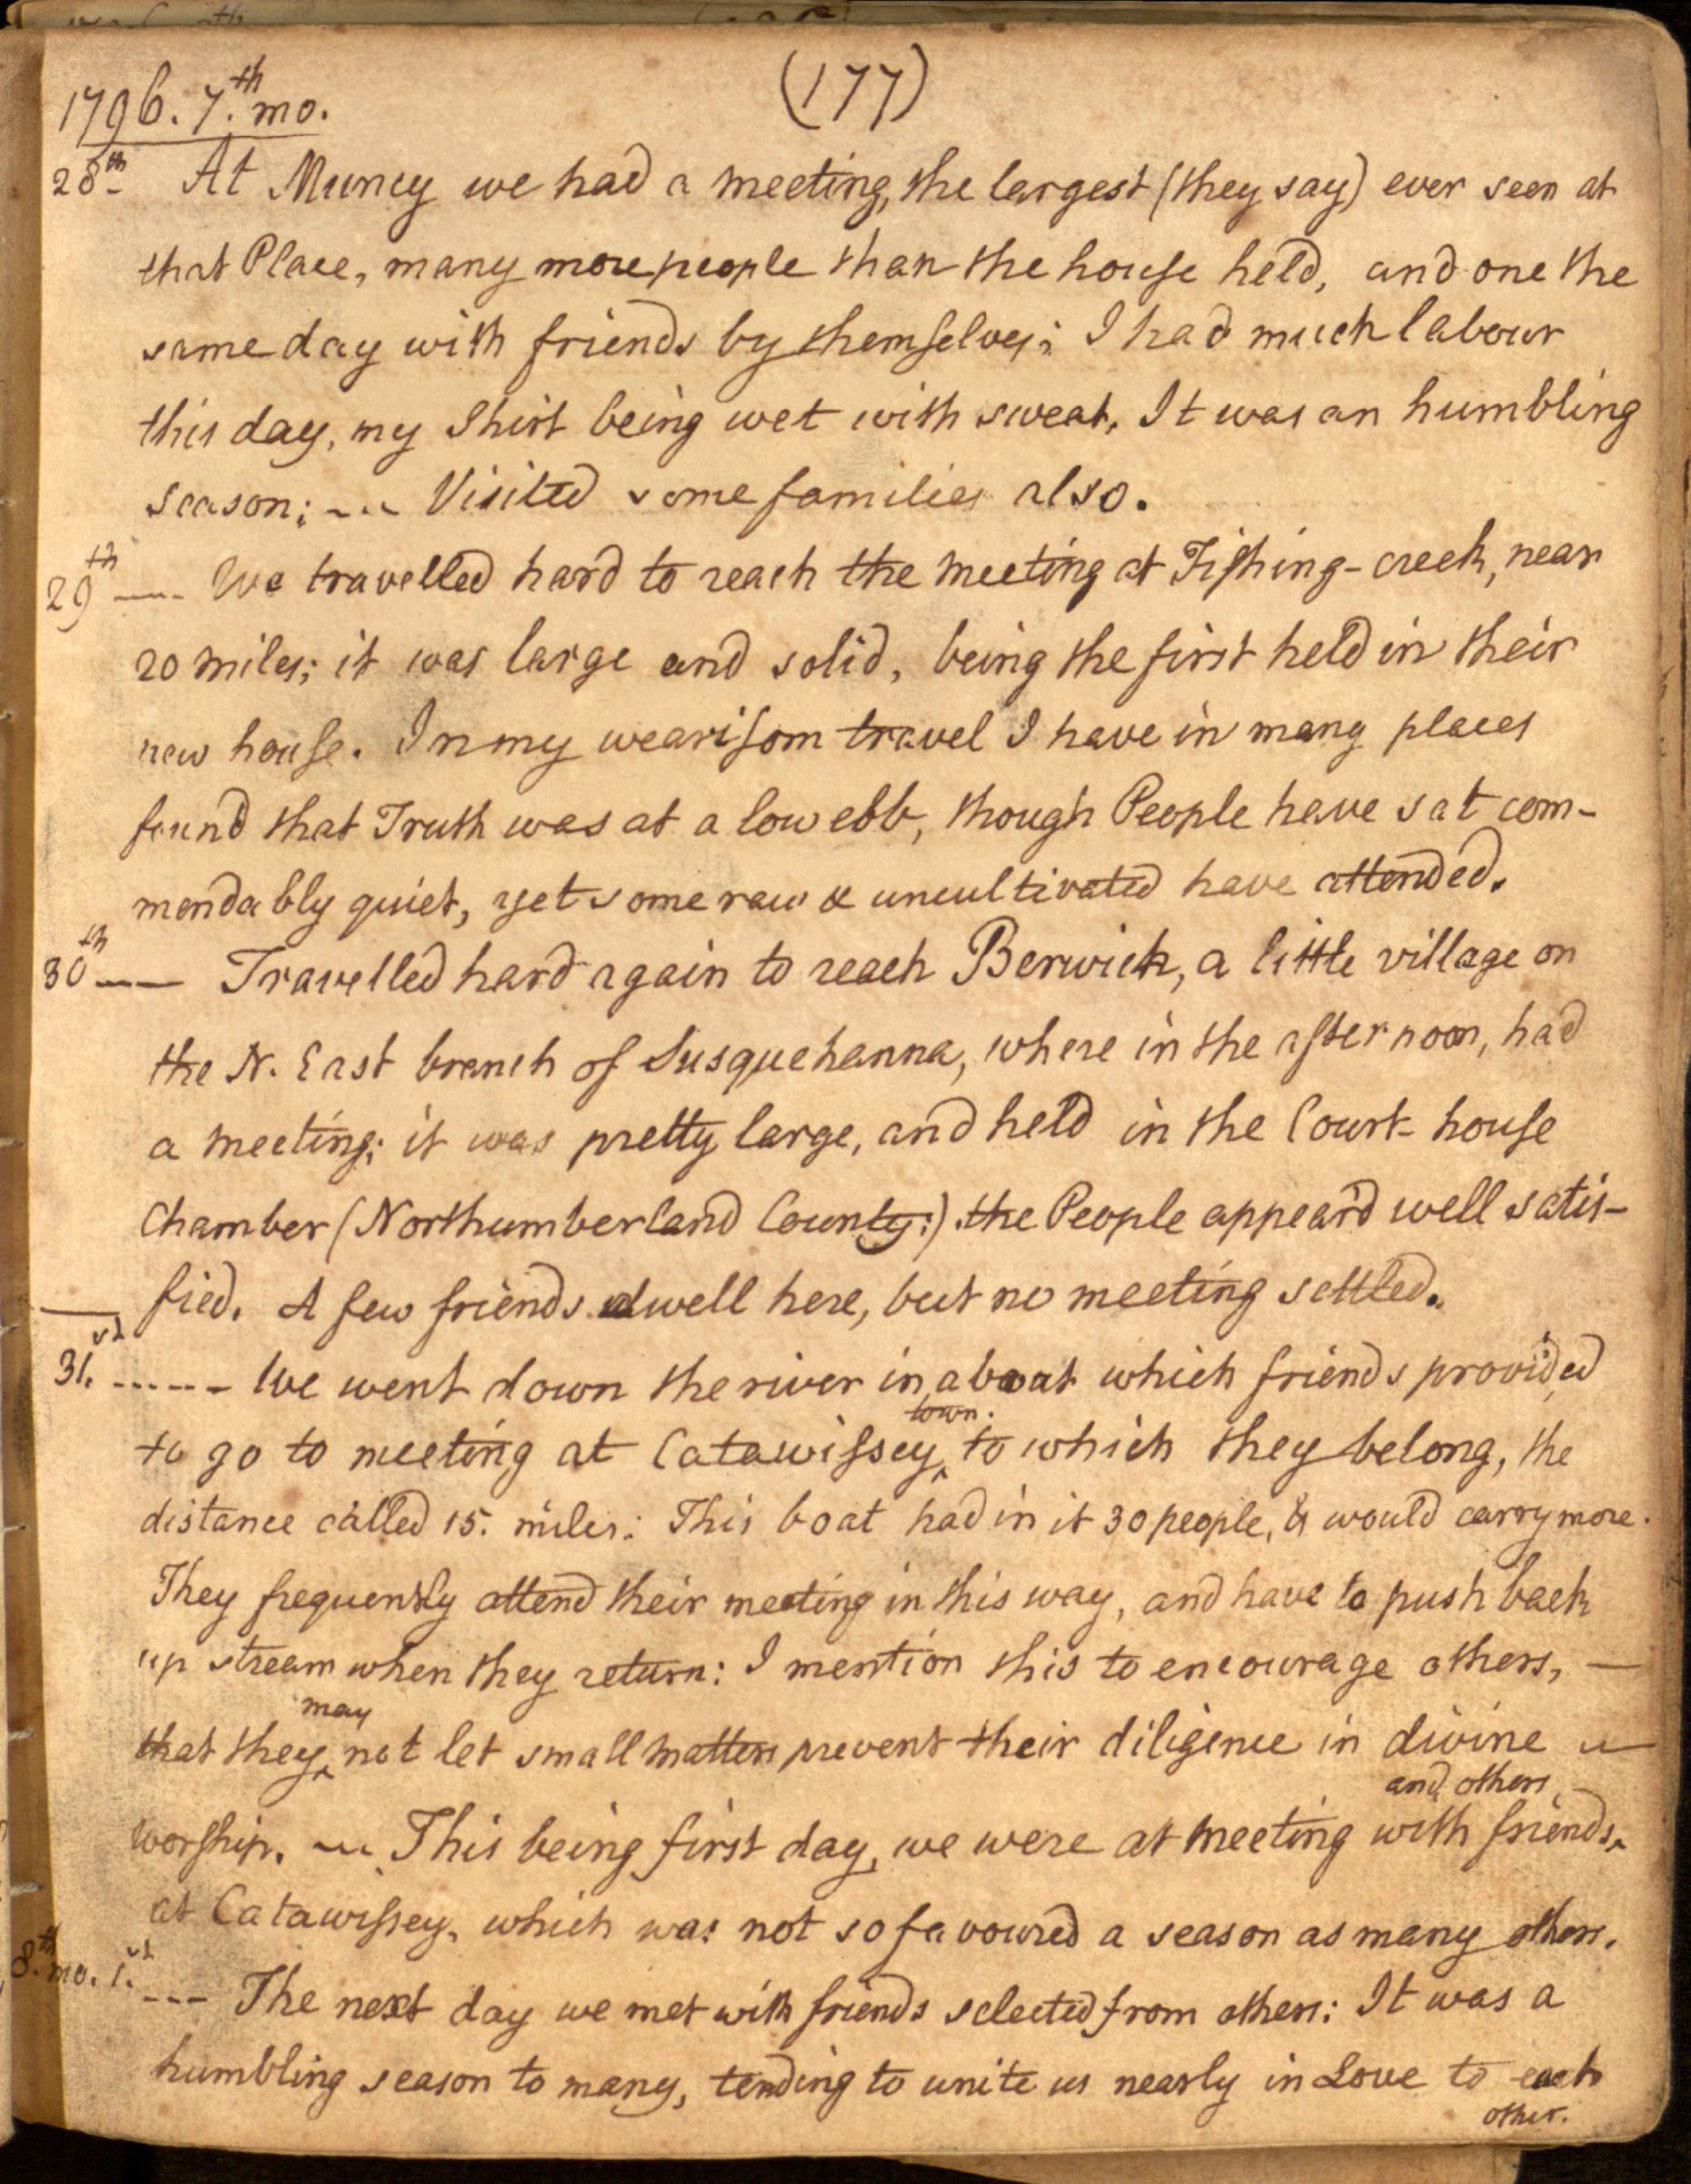 (177)
1796. 7.th mo.
28th At Muncy we had a meeting, the largest (they say) ever seen at
that Place, many more people than the house held, and one the
same day with friends by themselves; I had much labour
this day, my Shirt being wet with sweat, It was an humbling
season; --- Visited some families also.
29th --- We travelled hard to reach the meeting at Fishing-creek, near
20 miles; it was large and solid, being the first held in their
new house. In my wearisom travel I have in many places
found that Truth was at a low ebb, though People have sat com-
mendably quiet, yet some raw & uncultivated have attended.
30th --- Travelled hard again to reach Berwick, a little village on
the N. East branch of Susquehanna, where in the afternoon, had
a meeting; it was pretty large, and held in the Court-house
Chamber (Northumberland County:) the People appear'd well satis-
fied. A few friends dwell here, but no meeting settled.
31.st ------ We went down the river in a boat which friends provided
town.
to go to meeting at Catawissey ‸ to which they belong, the
distance called 15. miles: This boat had in it 30 people, & would carry more.
They frequently attend their meeting in this way, and have to push back
up stream when they return: I mention this to encourage others, —
may
that they ‸ not let small matters prevent their diligence in divine —
and others
worship. --- This being first day, we were at meeting with friends ‸
at Catawissey, which was not so favoured a season as many others.
8.th mo. 1.st --- The next day we met with friends selected from others: It was a
humbling season to many, tending to unite us nearly in Love to each
other.